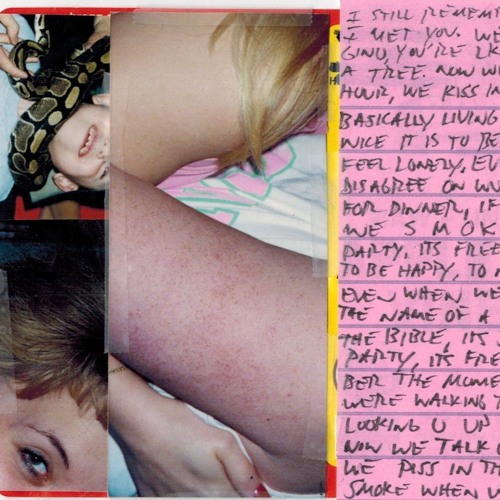 I STILL REMEM
I MET YOU. WE
GINO, YOU'RE LI
A TREE. NOW W
HOUR, WE KISS IN
BASICALLY LIVING
NICE IT IS TO BE
FEEL LONELY, EV
DISAGREE ON W
FOR DINNER, IF
WE SMOK
PARTY, ITS FREE
TO BE HAPPY, TO
EVEN WHEN WE
THE NAME OF A
THE BIBLE, ITS
PARTY, ITS FRE
BER THE MOME
WE'RE WALKING T
LOOKING U UP
NOW WE TALK
WE PISS IN TH
SMOKE WHEN